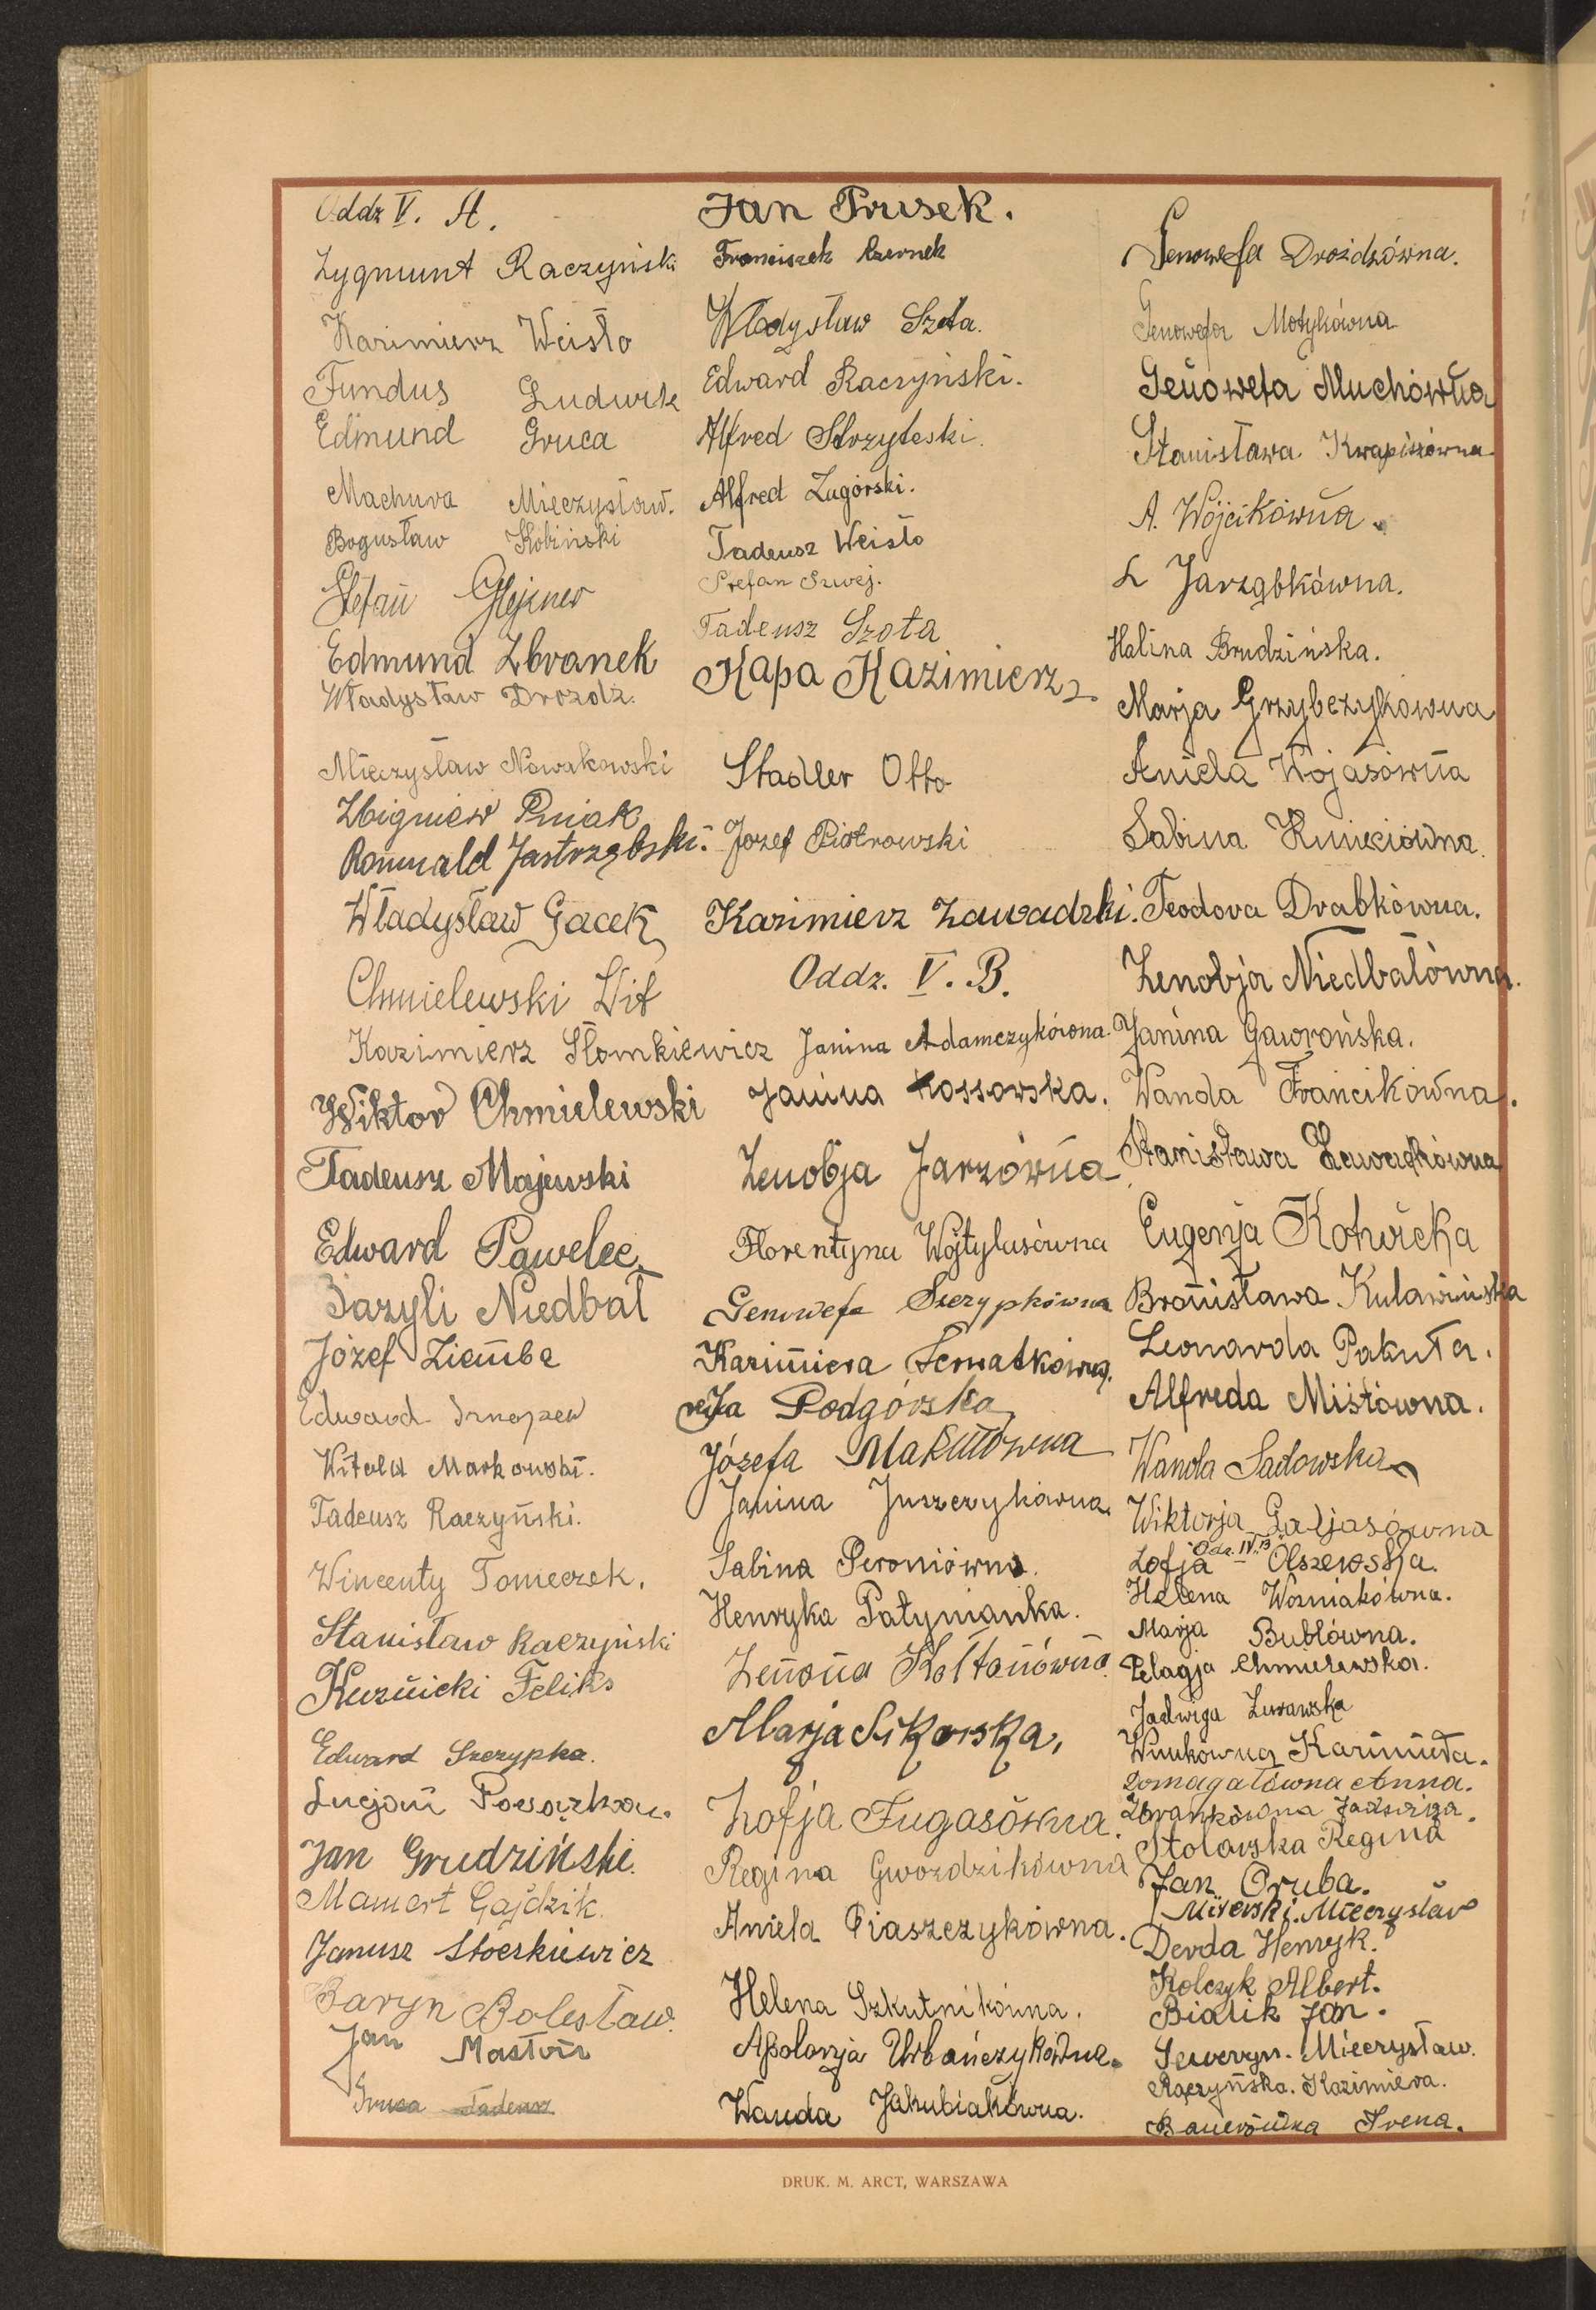 Oddz V. A.
Zygmunt Raczyński
Kazimierz Weisło
Fundus Ludwik
Edmund Gruca
Machura Mieczysław.
Bogusław Kobiński
Stefan Glejzner
Edmund Zbranek
Władysław Drozdz.
Mieczysław Nowakowski
Zbigniew Pniak
Romuald Jastrząbski.
Władysław Gacek
Chmielewski Wit
Kazimierz Słomkiewicz
Wiktor Chmielewski
Tadeusz Majewski
Edward Pawelec
Bazyli Niedbał
Józef Ziemba
Edward
Witold Markowski.
Tadeusz Raczyński.
Wincenty Tomeczek.
Stanisław Raczyński
Kuznicki Feliks
Edward Szczypka.
Lucjan
Jan Grudziński.
Mamert Gajdzik.
Janusz Stoczkiewicz
Baryn Bolesław.
Jan Mastoń
Gruca Tadeusz
Jan Prusek.
Franciszek Czernek
Władysław Szota.
Edward Raczyński.
Alfred
Alfred Zagórski.
Tadeusz Weisło
Stefan Szwej.
Tadeusz Szota
Kapa Kazimierz
Stadler Otto
Józef Piotrowski
Kazimierz Zawadzki.
Oddz. V. B.
Janina Adamczykówna.
Janina Kossowska.
Zenobja Jarzówna
Florentyna Wójtylasówna
Genowefa Szczypkówna
Kazimiera
Podgórska
Józefa Makułówna
Janina Juszczykówna
Sabina Peroniówna.
Henryka Patynianka.
Zenona Kołtonówna.
Marja Sikorska.
Zofja Fugasówna.
Regina Gwozdzikówna
Aniela Piaszczykówna.
Helena Szkutnikówna.
Apolonja Urbańczykówna.
Wanda Jakubiakówna.
Genowefa Droździówna.
Genowefa Motykówna
Genowefa Muchówna
Stanisława Kwapiszówna
A. Wójcikówna.
L Jarząbkówna.
Halina Brudzińska.
Marja Grzybczykówna
Aniela Wojasówna
Sabina Kmieciówna.
Teodora Drabkówna.
Zenobja Niedbałówna.
Janina Gawrońska.
Wanda Francikówna.
Stanisława
Eugenja Kotwicka
Bronisława Kulawińska
Leonarda Pakuła.
Alfreda Misiówna.
Wanda Sadowska
Wiktorja Galjasówna
Odz. IV. "B"
Zofja Olszewska.
Helena Wozniakówna.
Marja Bublówna.
Pelagja Chmielewska.
Jadwiga Zurawska
Wnukówna Kazimiera.
Domagałówna Anna.
Zbrankówna Jadwiga.
Stolarska Regina
Jan Oruba.
Mirerski. Mieczysław
Derda Henryk.
Kolczyk Albert.
Bialik Jan.
Seweryn. Mieczysław.
Raczyńska. Kazimiera.
Bauerówna Irena.
DRUK. M. ARCT, WARSZAWA